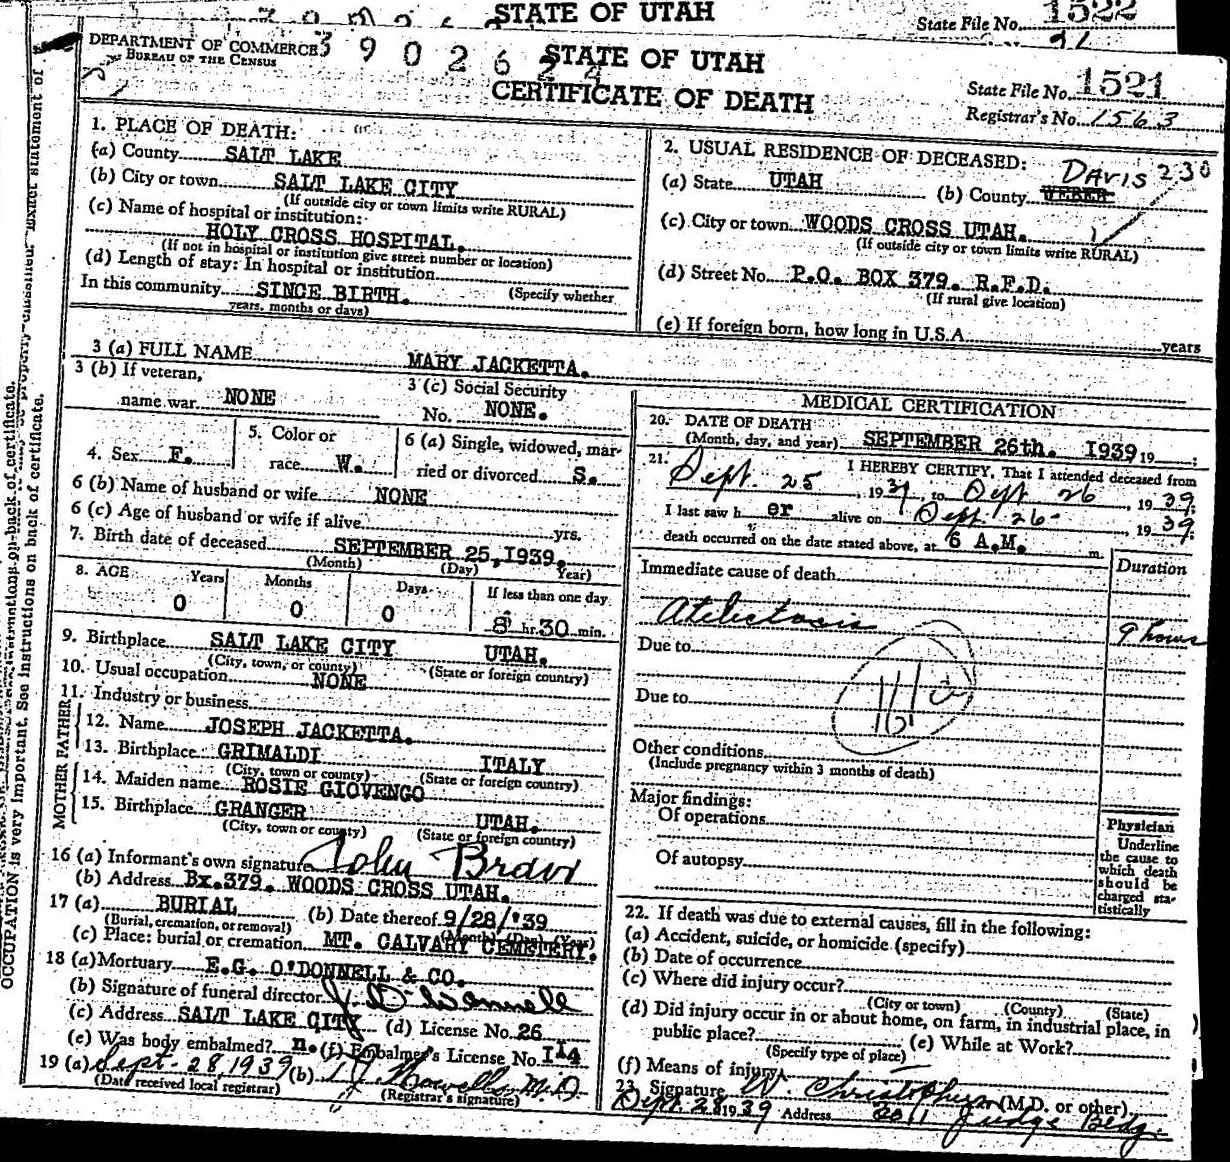 STATE OF UTAH
State File No. 1522
DEPARTMENT OF COMMERCE
BUREAU OF THE CENSUS
3 9 0 2 6 2 4
STATE OF UTAH
CERTIFICATE OF DEATH
State File No. 1521
Registrar's No. 1563
1. PLACE OF DEATH:
(a) County SALT LAKE
(b) City or town SALT LAKE CITY
(If outside city or town limits write RURAL)
(c) Name of hospital or institution:
HOLY CROSS HOSPITAL.
(If not in hospital or institution give street number or location)
(d) Length of stay: In hospital or institution
In this community SINCE BIRTH. (Specify whether
years, months or days)
2. USUAL RESIDENCE OF DECEASED: DAVIS 230
(a) State UTAH (b) County WEBER
(c) City or town WOODS CROSS UTAH.
(If outside city or town limits write RURAL)
(d) Street No. P.O. BOX 379. R.F.D.
(If rural give location)
(e) If foreign born, how long in U.S.A. years
3 (a) FULL NAME MARY JACKETTA.
3 (b) If veteran,
name war NONE
3 (c) Social Security
No. NONE.
4. Sex F.
5. Color or
race W.
6 (a) Single, widowed, mar-
ried or divorced S.
6 (b) Name of husband or wife NONE
6 (c) Age of husband or wife if alive yrs.
7. Birth date of deceased SEPTEMBER 25, 1939.
(Month) (Day) Year)
8. AGE Years Months Days If less than one day
0 0 0 8 hr. 30 min.
9. Birthplace SALT LAKE CITY UTAH.
(City, town, or county) (State or foreign country)
10. Usual occupation NONE
11. Industry or business
FATHER
12. Name JOSEPH JACKETTA.
13. Birthplace GRIMALDI ITALY
(City, town or county) (State or foreign country)
MOTHER
14. Maiden name ROSIE GIOVENGO
15. Birthplace GRANGER UTAH.
(City, town or county) (State or foreign country)
16 (a) Informant's own signature John
(b) Address Bx.379. WOODS CROSS UTAH.
17 (a) BURIAL (b) Date thereof 9/28/'39
(Burial, cremation, or removal) (Month) (Day) (Year)
(c) Place: burial or cremation MT. CALVARY CEMETERY.
18 (a) Mortuary E.G. O'DONNELL & CO.
(b) Signature of funeral director J. O'Donnell
(c) Address SALT LAKE CITY (d) License No. 26
(e) Was body embalmed? n. (f) Embalmer's License No. 114
19 (a) Sept. 28, 1939 (b) M.D.
(Date received local registrar) (Registrar's signature)
MEDICAL CERTIFICATION
20. DATE OF DEATH
(Month, day, and year) SEPTEMBER 26th. 1939 19 ;
21. I HEREBY CERTIFY, That I attended deceased from
Sept. 25, 1939, to Sept 26, 1939;
I last saw h er alive on Sept. 26- , 1939;
death occurred on the date stated above, at 6 A.M. m.
Immediate cause of death
Duration
Atelectasis
9 hours
Due to
161a
Due to
Other conditions
(Include pregnancy within 3 months of death)
Major findings:
Of operations
Of autopsy
Physician
Underline
the cause to
which death
should be
charged sta-
tistically
22. If death was due to external causes, fill in the following:
(a) Accident, suicide, or homicide (specify)
(b) Date of occurrence
(c) Where did injury occur?
(City or town) (County) (State)
(d) Did injury occur in or about home, on farm, in industrial place, in
public place? (e) While at Work?
(Specify type of place)
(f) Means of injury
23. Signature (M.D. or other)
Sept. 28, 1939 Address 2011 Judge Bldg.
OCCUPATION is very important. See instructions on back of certificate.